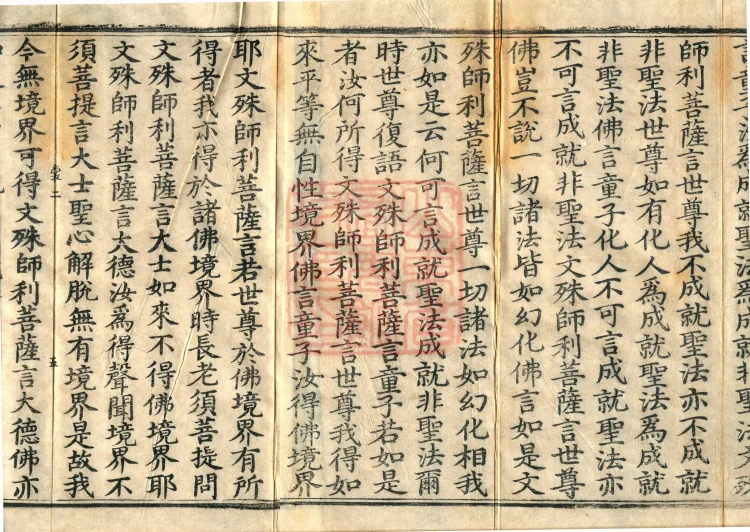 爲成就聖法爲成就非聖法文殊
師利菩薩言世尊我不成就聖法亦不成就
非聖法世尊如有化人為成就聖法為成就
非聖法佛言童子化人不可言成就聖法亦
不可言成就非聖法文殊師利菩薩言世尊
佛豈不說一切諸法皆如幻化佛言如是文
殊師利菩薩言世尊一切諸法如幻化相我
亦如是云何可言成就聖法成就非聖法爾
時世尊復語文殊師利菩薩言童子若如是
者汝何所得文殊師利菩薩言世尊我得如
來平等無自性境界佛言童子汝得佛境界
耶文殊師利菩薩言若世尊於佛境界有所
得者我亦得於諸佛境界時長老須菩提問
文殊師利菩薩言大士如來不得佛境界耶
文殊師利菩薩言大德汝為得聲聞境界不
須菩提言大士聖心解脫無有境界是故我
二 五
今無境界可得文殊師利菩薩言大德佛亦